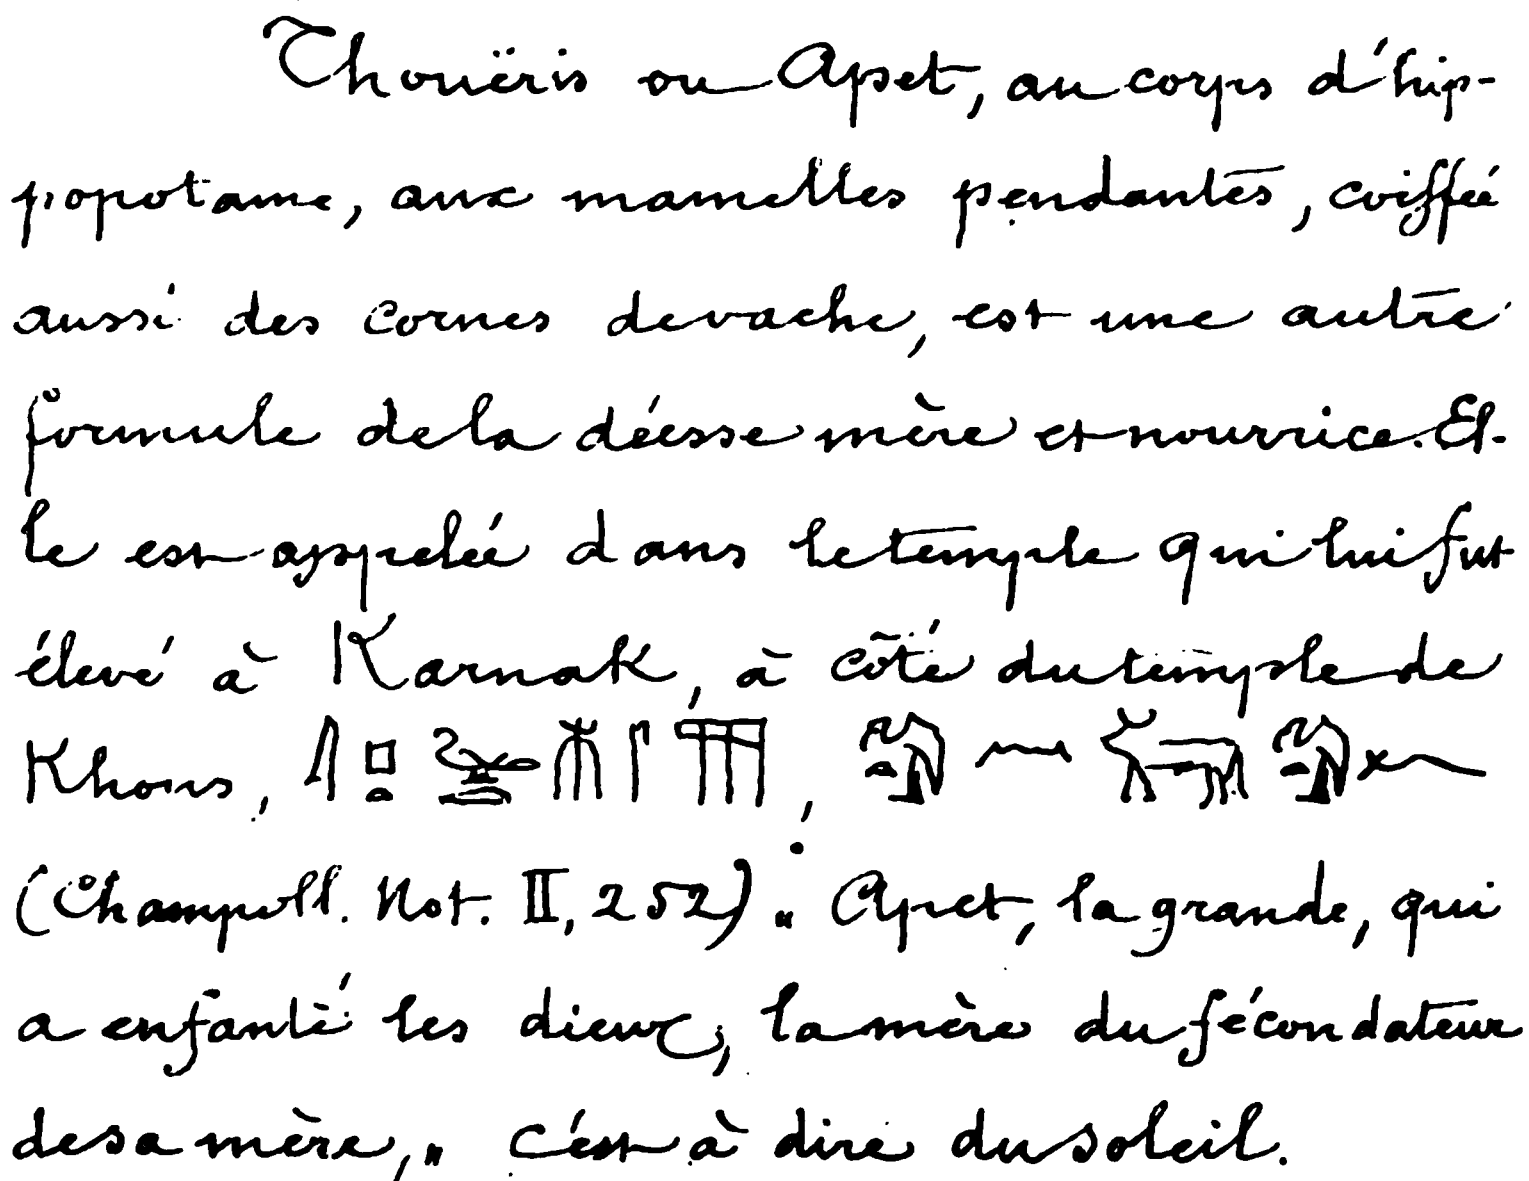 Thouëris ou Apet, au corps d'hip-
popotame, aux mamelles pendantes, coiffée
aussi des cornes de vache, est une autre
formule de la déesse mère et nourrice. El-
le est appelée dans le temple qui lui fut
élevé à Karnak, à côté du temple de
Khons,
(Champoll. Not. II, 252) : „ Apet, la grande, qui
a enfanté les dieux, la mère du fécondateur
de sa mère, „ c'est à dire du soleil.